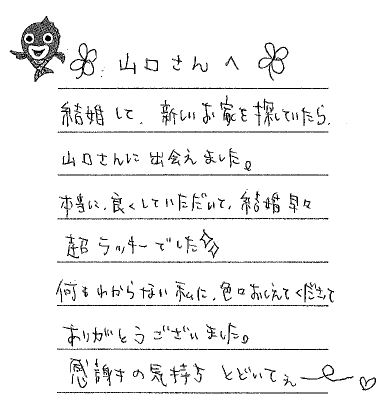 山口さんへ
結婚して、新しいお家を探していたら、
山口さんに出会えました。
本当に、良くしていただいて、結婚早々
超ラッキーでした
何もわからない私に、色々おしえてくださって
ありがとうございました。
感謝の気持ち とどいてぇー